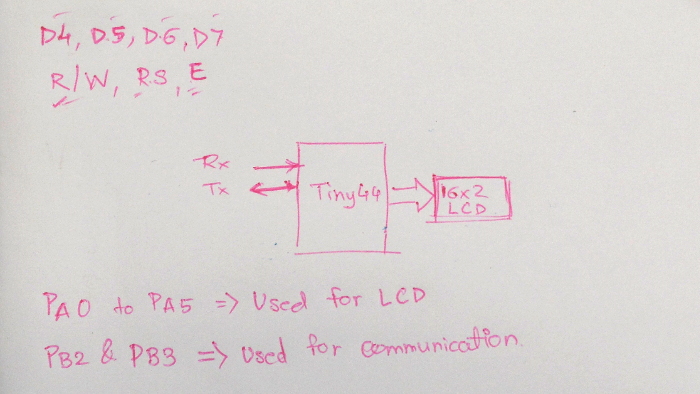 D4, D5, D6, D7
R/W, RS, E
Rx
Tx
Tiny44
16x2
LCD
PA0 to PA5 => Used for LCD
PB2 & PB3 => Used for communication.